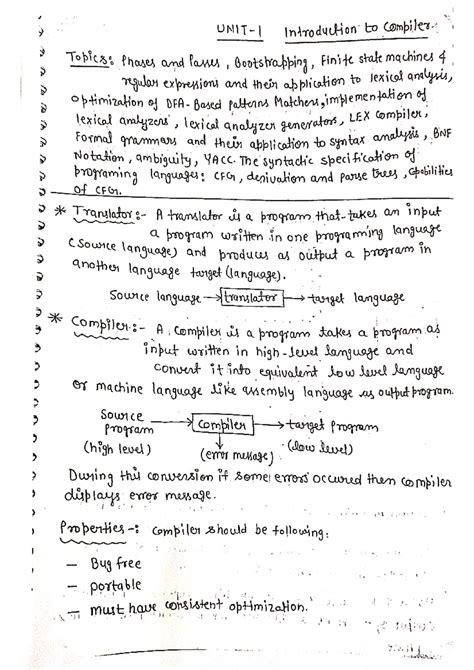 UNIT-1 Introduction to Compiler:
Topics: Phases and Passes, Bootstrapping, Finite state machines &
regular expressions and their application to lexical analysis,
optimization of DFA-Based patterns Matchers, implementation of
lexical analyzers, lexical analyzer generators, LEX compiler,
Formal grammars and their application to syntax analysis, BNF
Notation, ambiguity, YACC. The syntactic specification of
programing languages: CFG, derivation and Parse trees, capabilities
of CFG.
* Translator:- A translator is a program that takes an input
a program written in one programing language
(Source language) and produces as output a program in
another language target (language).
Source language → translator → target language
* Compiler:- A compiler is a program takes a program as
input written in high-level language and
convert it into equivalent low level language
or machine language like assembly language as output program.
Source program (high level) → Compiler → target Program (low level)
(error message)
During this conversion if some errors occured then compiler
displays error message.
Properties-: Compiler should be following:
— Bug free
— portable
— must have consistent optimization.